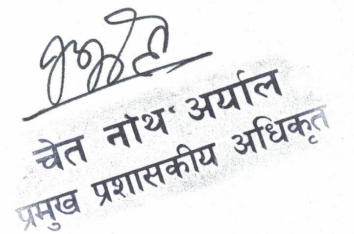 चेत नाथ अर्याल
प्रमुख प्रशासकीय अधिकृत